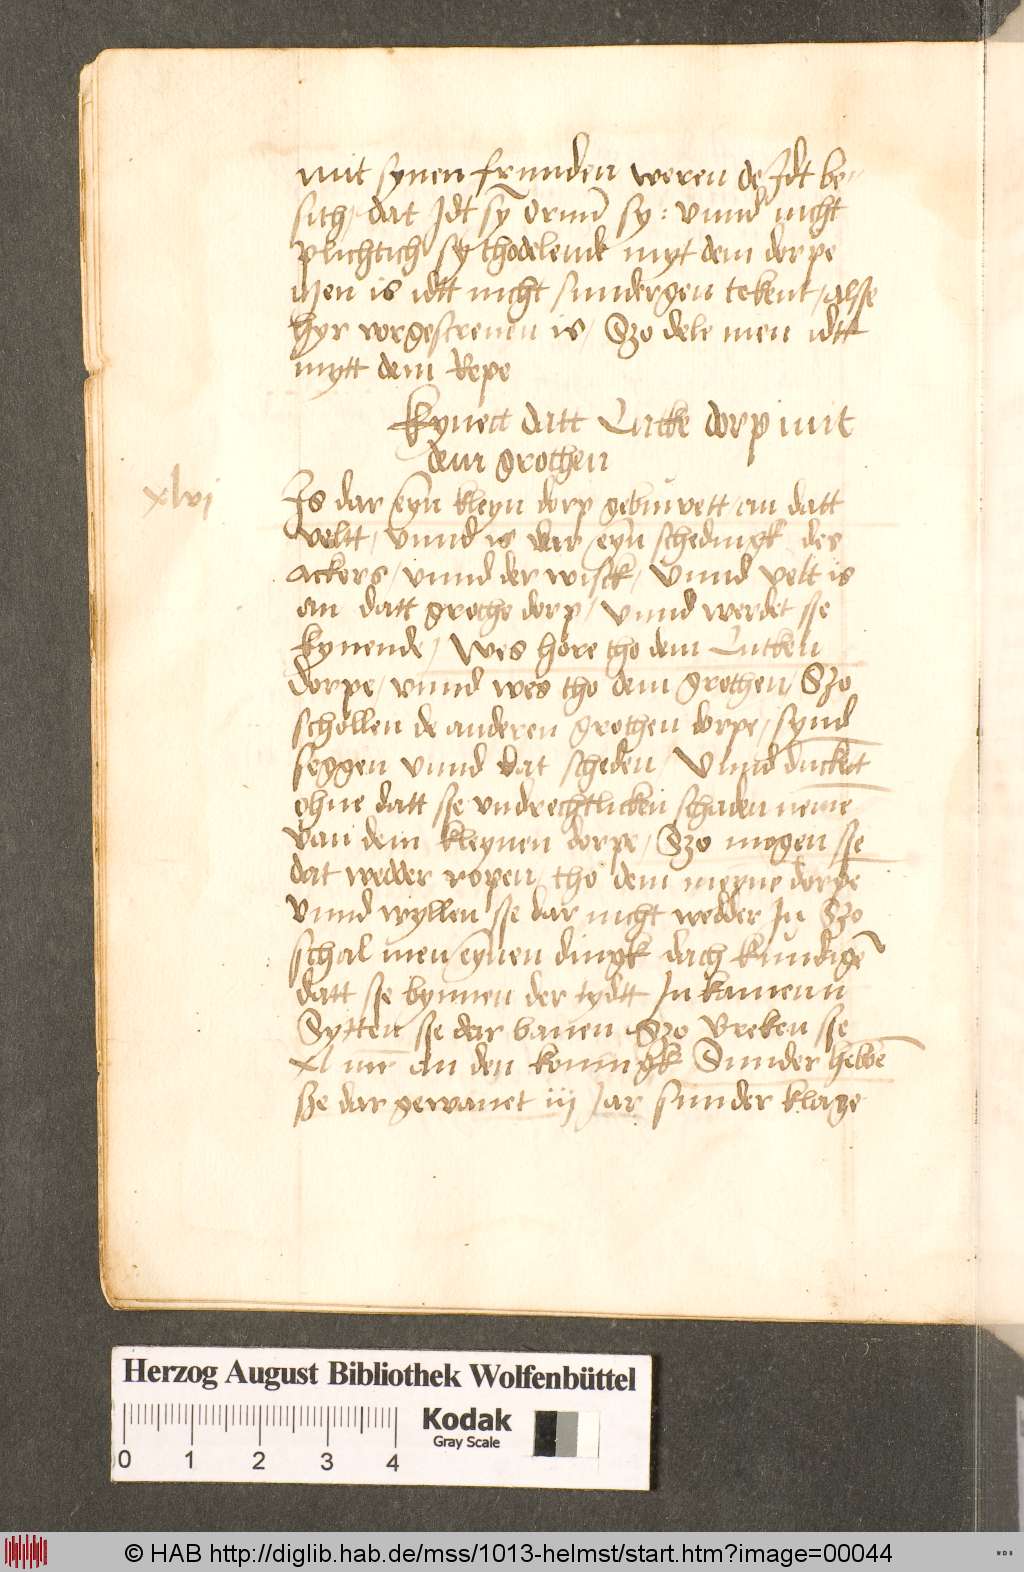 mit synen frunden weren de Jdt be-
sith, dat Jdt sy Ornu͞ sy: vnnd nicht
plichtich sy thodelende myt dem dorpe
Men is idtt nicht sundergen tekent, alsse
hyr vorgescreuen is, Szo dele men idtt
mytt dem Repe
Kynett datt Lutke dorp mit
dem grothen
xlvi
Is dar eyn kleyn dorp gebuwett, an datt
veltt, vnnd is dar eyn schedingk des
ackers, vnnd der wisck, vnnd velt is
an datt grothe dorp, vnnd werdet sse
kynende, wes hore tho dem Lutken
dorpe, vnnd wes tho dem grothen, Szo
schollen de anderen grothen dorpe, synd
seggen vnnd dat scheden, Vnnd duckett
ohne datt sse vndrechtlicken schaden neme͞
van dem kleynen dorpe, Szo mogen sse
dat wedder ropen, tho dem meyne dorpe
vnnd wyllen sse dar nicht wedder Jn Szo
schal men eynen dingk dach kundige͞
datt sse bynnen der tydtt Jn kamenn
Sytten sse dar bauen Szo breken sse
xl mr an den koningk Sunder hebbe͞
sze dar gewanet iij Jar sunder klage
Herzog August Bibliothek Wolfenbüttel
Kodak
Gray Scale
0 1 2 3 4
© HAB http://diglib.hab.de/mss/1013-helmst/start.htm?image=00044